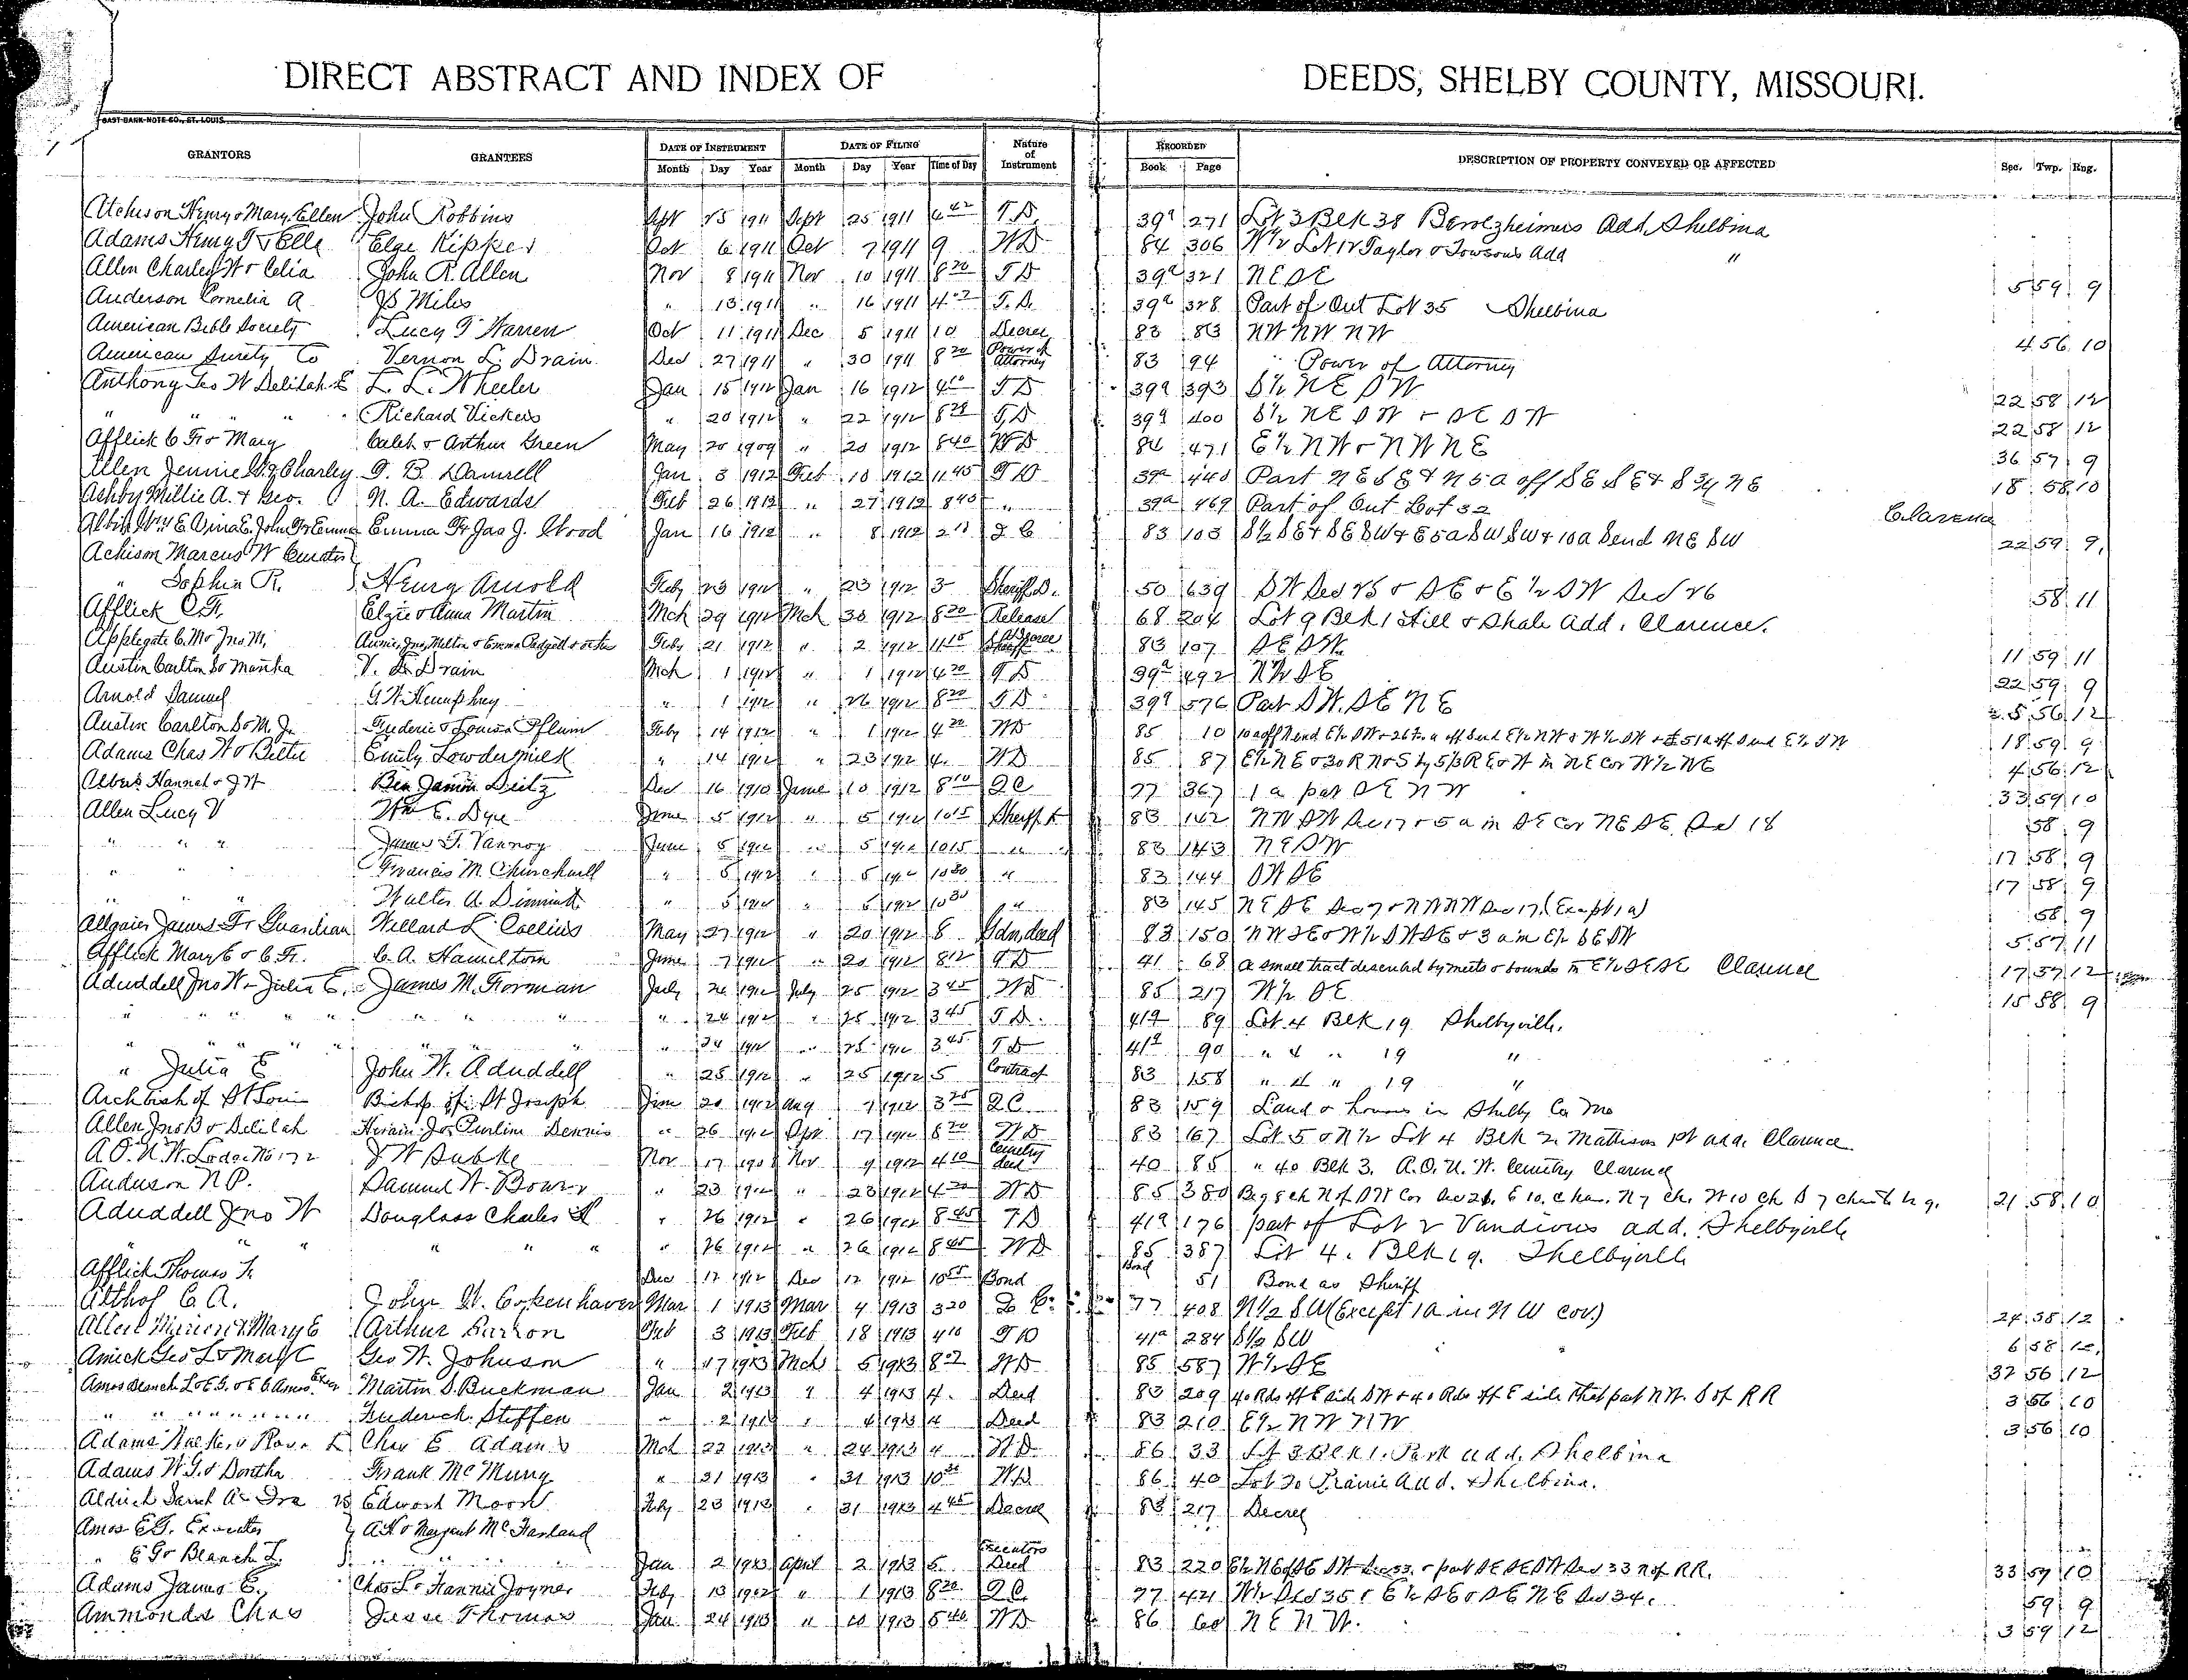 DIRECT ABSTRACT AND INDEX OF DEEDS, SHELBY COUNTY, MISSOURI.
GAST BANK NOTE CO., ST. LOUIS
GRANTORS GRANTEES DATE OF INSTRUMENT DATE OF FILING Nature of Instrument RECORDED DESCRIPTION OF PROPERTY CONVEYED OR AFFECTED Sec. Twp. Rng.
Month Day Year Month Day Year Time of Day Book Page
Atchison Henry & Mary Ellen John Robbins Sept 25 1911 4 T.D. 39a 271 Lot 3 Blk 38 Add Shelbina
Adams Henry T & Elle Elze Kipker Oct 6 1911 Oct 7 1911 9 WD 84 306 W½ Lot 12 Taylor & Towsons Add "
Allen Charley W & Celia John R. Allen Nov 8 1911 Nov 10 1911 8 20 T D 39a 321 NE SE 5 59 9
Anderson Cornelia A Miles " 13 1911 " 16 1911 T.D. 39a 328 Part of Out Lot 35 Shelbina
American Bible Society Lucy T Warren Oct 11 1911 Dec 5 1911 10 Decree 83 83 NW NW NW 4 56 10
American Surety Co Vernon L. Drain Dec 27 1911 " 30 1911 8 20 Power of Attorney 83 94 Power of Attorney
Anthony Geo W Delilah E L. L. Wheeler Jan 15 1912 Jan 16 1912 4 10 T D 39a 393 S½ NE SW 22 58 12
" " " " Richard Vickers " 20 1912 " 22 1912 T.D 39a 400 S½ NE SW & SE SW 22 58 12
Afflick C F & Mary Caleb & Arthur Green May 20 1909 " 20 1912 8 40 WD 84 471 E½ NW & NW NE 36 57 9
Allen Jennie & Charley T. B. Damrell Jan 3 1912 Feb 10 1912 11 45 T D 39a 440 Part NE SE & N 5 a off SE SE & S ¾ NE 18 58 10
Ashby Millie A. & Geo. N. A. Edwards Feb 26 1912 " 27 1912 8 40 " 39a 469 Part of Out Lot 32 Clarence
Emma & Jas J. Wood Jan 16 1912 " 8 1912 Q C 83 103 S½ SE & SE SW & E 5 a SW SW & 10 a Send NE SW 22 59 9
Achison Marcus W Curator
" Sophia R. Henry Arnold Feby 23 1912 " 23 1912 3 Sheriff D. 50 639 SW Sec 25 & SE & E½ SW Sec 26 58 11
Afflick C.F. Elzie & Anna Martin Mch 29 1912 Mch 30 1912 8 20 Release 68 204 Lot 9 Blk 1 Hill & Shale Add. Clarence.
Applegate C. M & Jno M. Feby 21 1912 " 2 1912 11 15 83 107 SE SW 11 59 11
Austin Carlton S & Martha V. L. Drain Mch 1 1912 " 1 1912 4 20 T D 39a 492 N½ SE 22 59 9
Arnold Samuel G. W. Humphrey " 1 1912 " 26 1912 8 20 T D 39a 576 Part SW. SE NE 5 56 12
Austin Carlton S & M. J. Frederic & Louisa Pflum Feby 14 1912 " 1 1912 4 20 WD 85 10 18 59 9
Adams Chas W & Bettie Emily Lowdermilk " 14 1912 " 23 1912 4. WD 85 87 4 56 12
Albus Hannah & J W Benjamin Deitz Dec 16 1910 June 10 1912 8 10 Q C 77 367 1 a part SE NW 33 59 10
Allen Lucy V Wm E. Dye June 5 1912 " 5 1912 10 15 Sheriff 83 142 NW SW Sec 17 & 5 a in SE Cor NE SE Sec 18 58 9
" " " James T. Vannoy June 5 1912 " 5 1912 10 15 " 83 143 NE SW 17 58 9
" " Francis M. Churchwell " 5 1912 " 5 1912 10 30 " 83 144 SW SE 17 58 9
" " Walter A. Dimmitt " 5 1912 " 5 1912 10 30 " 83 145 NE SE Sec 7 & NW NW Sec 17, (Except 1 a) 58 9
Allgaier James F & Guardian Willard L Collins May 27 1912 " 20 1912 8 Gdn, deed 83 150 NW SE & W½ SW SE & 3 a in E½ SE SW 5 57 11
Afflick Mary E & C. F. C. A. Hamilton June 7 1912 " 20 1912 8 12 T D 41 68 a small tract described by meets & bounds in E½ SE SE Clarence 17 57 12
Aduddell Jno W & Julia E. James M. Forman July 24 1912 July 25 1912 3 45 WD 85 217 W½ SE 15 58 9
" " " " " " " " 24 1912 " 25 1912 3 45 T D. 41a 89 Lot 4 Blk 19 Shelbyville.
" " " " " " " 24 1912 " 25 1912 3 45 T D 41a 90 " 4 " 19 "
" Julia E John W. Aduddell " 25 1912 " 25 1912 5 Contract 83 158 " 4 " 19 "
Archbish of St Louis Bishop of St Joseph June 20 1912 Aug 7 1912 Q C 83 159 Land & houses in Shelby Co Mo
Allen Jno B & Delilah Hiram J & Purline Dennis " 26 1912 17 1912 8 20 WD 83 167 Lot 5 & N½ Lot 4 Blk 2 Mathison 1st add. Clarence
A.O.U.W. Lodge No 172 J W Nov 17 Nov 9 1912 4 10 Cemetry deed 40 85 " 40 Blk 3. A.O.U.W. Cemetry Clarence
Anderson N P. Samuel W. Bower " 23 1912 " 23 1912 4 20 WD 85 380 21 58 10
Aduddell Jno W Douglass Charles " 26 1912 " 26 1912 8 45 T D 41a 176 part of Lot 2 Vandivers add. Shelbyville
" " " " " " 26 1912 " 26 1912 8 45 WD 85 387 Lot 4. Blk 19. Shelbyville
Afflick Thomas F. Dec 12 1912 Dec 12 1912 10 55 Bond Bond 51 Bond as Sheriff
Althof C. A. John W. Copenhaver Mar 1 1913 Mar 4 1913 3 20 Q C. 77 408 N½ SW (Except 1 a in NW cor.) 24 58 12
Mary E Arthur Barron Feb 3 1913 Feb 18 1913 4 10 T D 41a 284 S½ SW 6 58 12
Amick Geo L & Mary C Geo W. Johnson " 17 1913 Mch 5 1913 8 WD 85 587 W½ SE 32 56 12
Amos Blanch L & E.G. & E G Amos Exctr Martin S. Buckman Jan 2 1913 " 4 1913 4. Deed 83 209 40 Rds off E side SW & 40 Rds off E side that part NW. S of RR 3 56 10
" " " " " " " Frederich Steffen " 2 1913 " 4 1913 4 Deed 83 210 E½ NW NW 3 56 10
Adams & Rosa L Chas E Adams Mch 22 1913 " 24 1913 4 WD 86 33 Lot 3 Blk 1. Park add. Shelbina
Adams W. G. & Doretha Frank McMurry " 31 1913 " 31 1913 10 WD 86 40 Lot 20 Prairie Add. Shelbina.
Aldrich Sarah A & Ira vs Edward Moore Feby 23 1913 " 31 1913 4 45 Decree 83 217 Decree
Amos E.G. Executor A H & Margaret McFarland
" E G & Blanch L. " " " Jan 2 1913 April 2 1913 5 Executors Deed 83 220 33 57 10
Adams James E. Chas L & Fannie Joyner Feby 13 " 1 1913 8 20 Q.C. 77 421 W½ Sec 35 & E½ SE & SE NE Sec 34. 59 9
Ammonds Chas Jesse Thomas Jan 24 1913 " 10 1913 5 40 WD 86 60 NE NW. 3 59 12